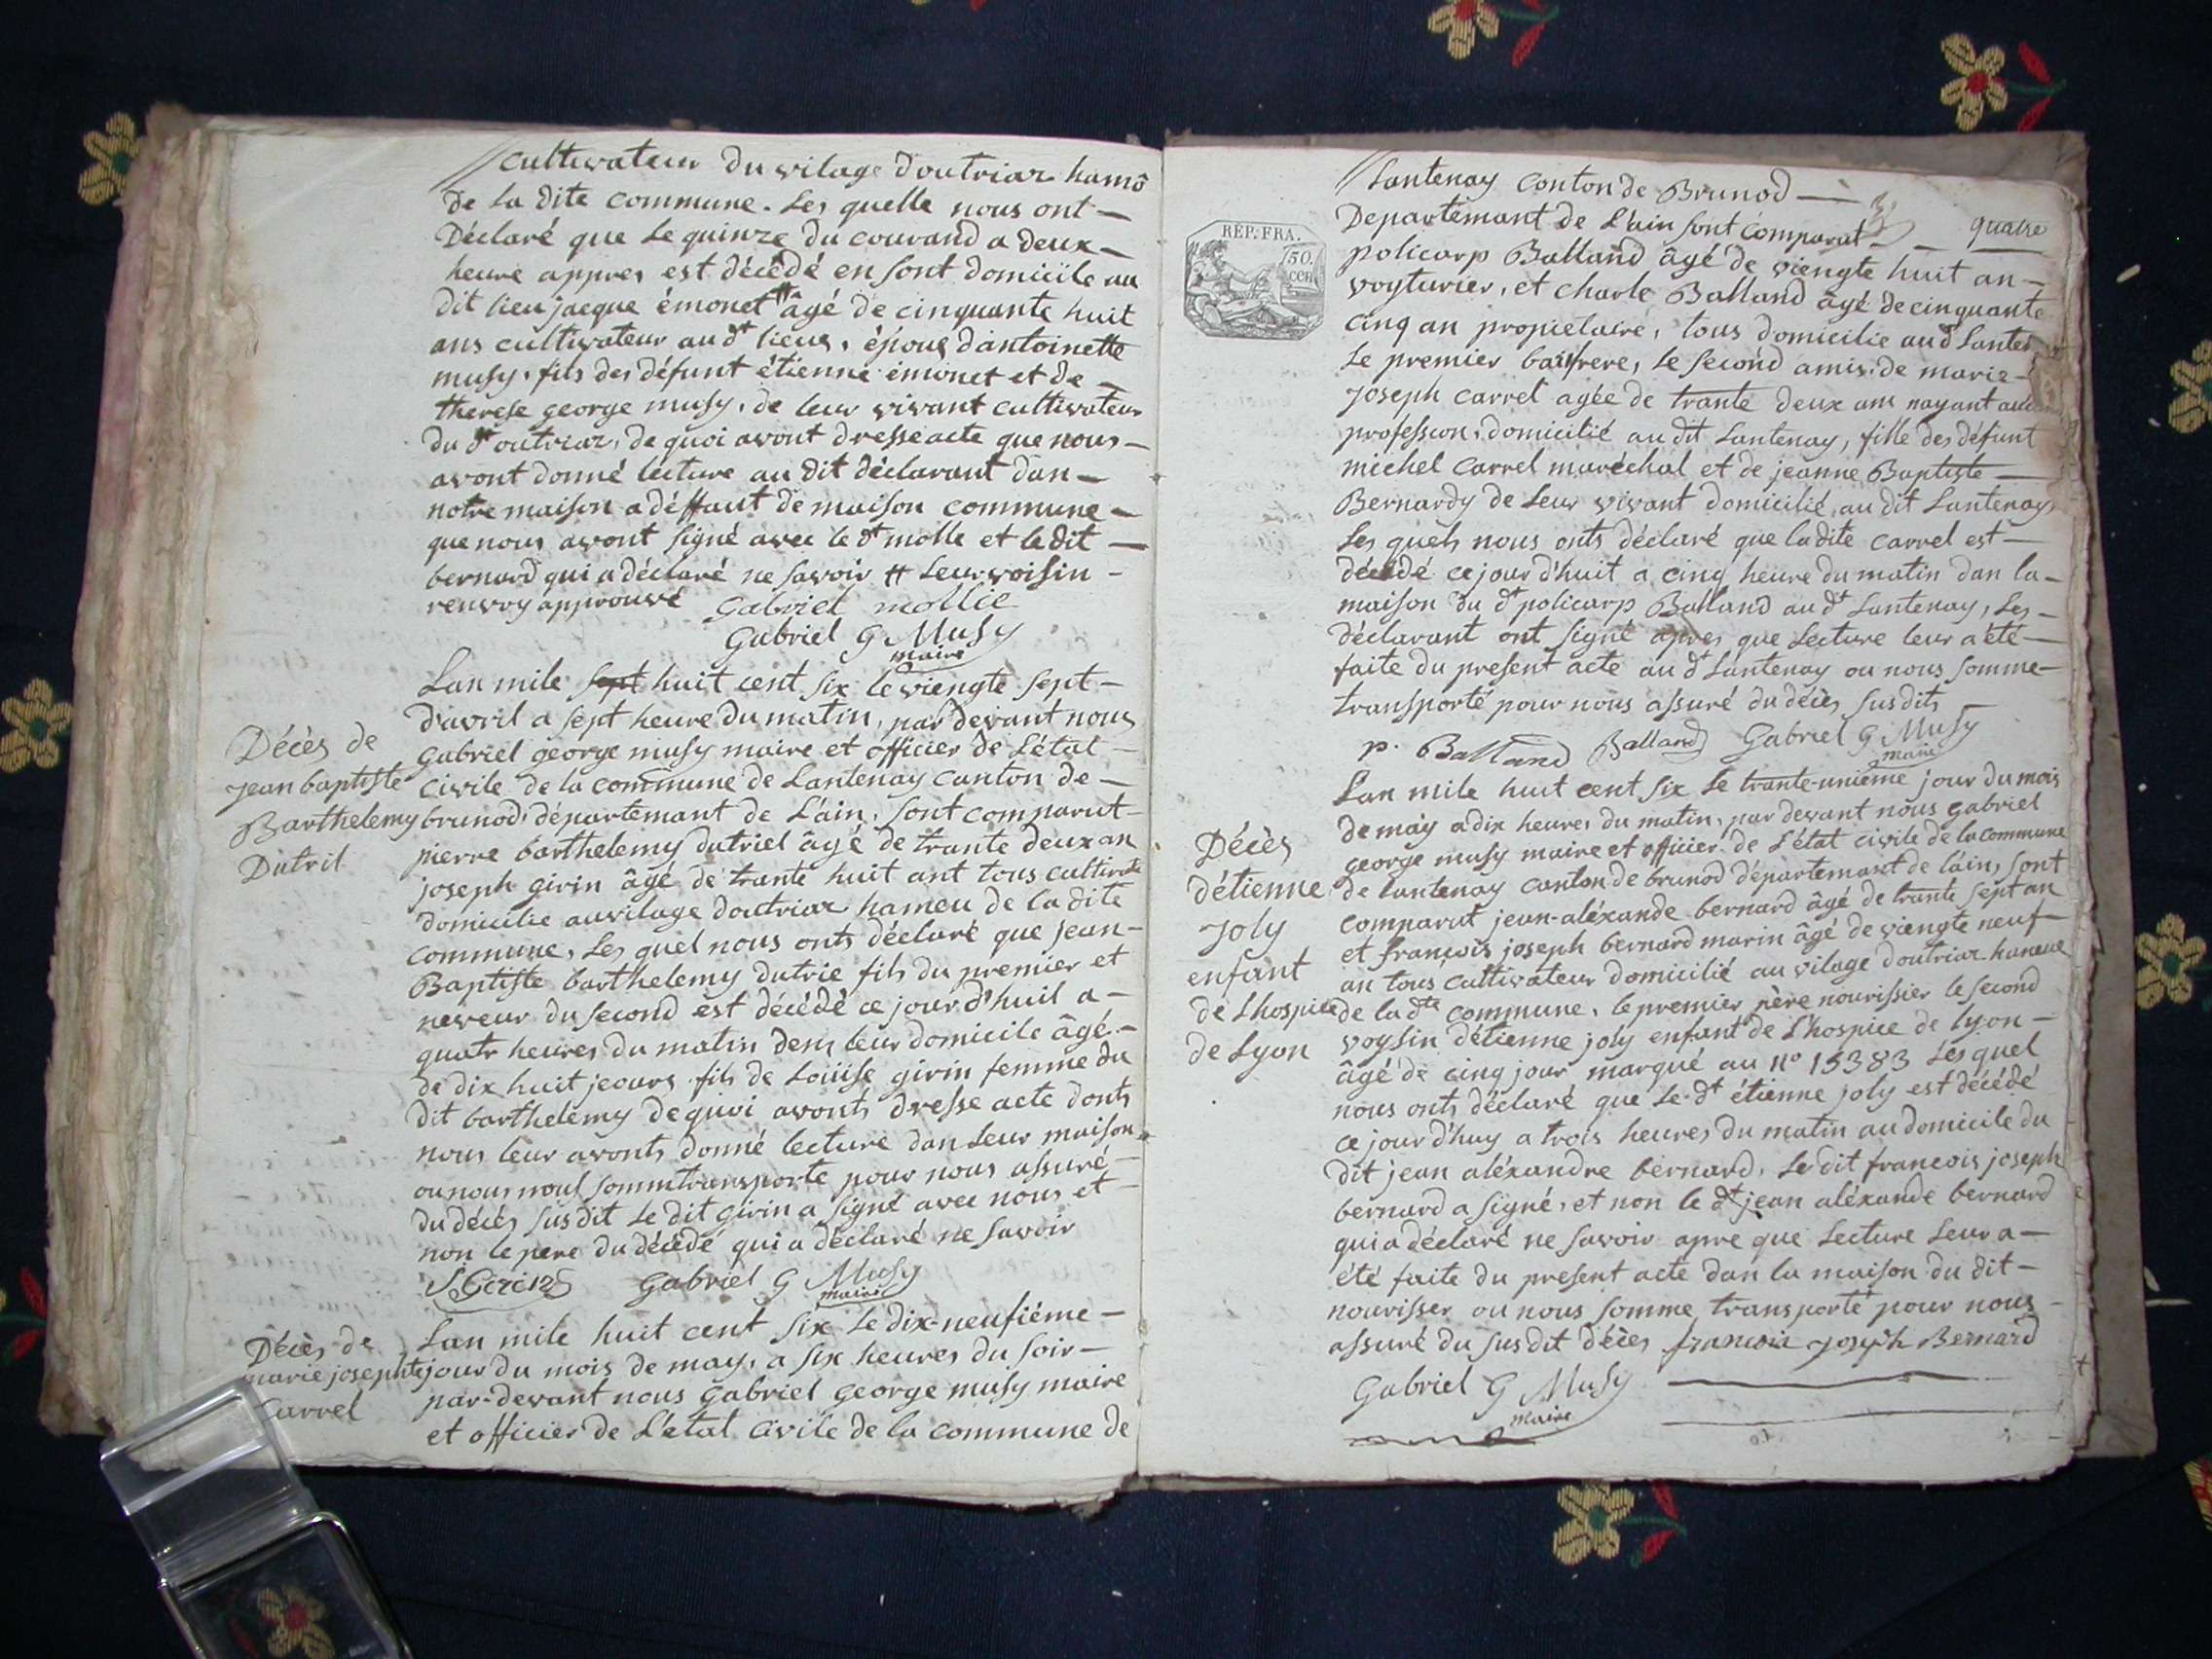 cultivateur du vilage doutriaz hamô
de la dite commune. Les quelle nous ont
Déclaré que le quinze du courand a deux
heure appres est décédé en sont domicile au
dit lieu jacque émonet # âgé de cinquante huit
ans cultivateur au dt lieus, épous dantoinette
musy, fils des défunt étienne émonet et de
therese george musy, de leur vivant cultivateur
du dt outriaz, de quoi avont dresse acte que nous
avont donné lecture au dit déclarant dan
notre maison a déffaut de maison commune
que nous avont signé avec le dt molle et le dit
bernard qui a déclaré ne savoir # leur voisin
renvoy approuvé Gabriel mollie
Gabriel G Musy
maire
Décès de
jean baptiste
Barthelemy
Dutril
Lan mile sept huit cent six le viengte sept
d'avril a sept heure du matin, par devant nous
Gabriel george musy maire et officier de L'état
civile de la commune de Lantenay canton de
brunod, département de L'ain, sont comparut
pierre barthelemy dutriel âgé de trante deux an
joseph girin âgé de trante huit ant tous cultivate
domicilie au vilage doutriaz hameu de la dite
commune, Les quel nous onts déclaré que jean
Baptiste barthelemy dutrie fils du premier et
neveur du second est décédé ce jour d'huil a
quatr heures du matin dens leur domicile âgé
de dix huit jeours fils de Loüise girin femme du
dit barthelemy de quoi avonts dresse acte donts
nous leur avonts donné lecture dan leur maison
ou nous nous somm transporte pour nous assuré
du décès susdit Le dit girin a signé avec nous et
non le pere du décédé qui a déclaré ne savoir
Gabriel G Musy
maire
Décès de
marie josephte
Carrel
Lan mile huit cent six Le dix-neufiéme
jour du mois de may, a six heures du soir
par-devant nous Gabriel George musy maire
et officier de L'état civile de la commune de
RÉP. FRA.
50.
cen.
quatre
Lantenay conton de Brunod
Departemant de L'ain sont comparut
policarp Balland âgé de viengte huit an
voyturier, et charle Balland âgé de cinquante
cinq an propietaire, tous domicilie au d Lanten
Le premier baufrere, le second amis de marie
joseph carrel agée de trante deux ans nayant
profession, domicilié au dit Lantenay, fille des défunt
michel Carrel maréchal et de jeanne Baptiste
Bernardy de Leur vivant domicilié au dit Lantenay,
Les quels nous onts déclaré que ladite carrel est
décédé ce jour d'huit a cinq heure du matin dan la
maison du dt policarp Balland au dt Lantenay, Les
déclarant ont signé apres que Lecture leur a été
faite du present acte au dt Lantenay ou nous somme
transporté pour nous assuré du décès susdits
p. Balland Balland Gabriel G Musy
maire
Décès
détienne
joly
enfant
de Lhospice
de Lyon
Lan mile huit cent six Le trante-uniéme jour du mois
de may a dix heures du matin, par devant nous gabriel
george musy maire et officier de L'état civile de la commune
de lantenay canton de brunod départemant de lain, sont
comparut jean-aléxande bernard âgé de trante sept an
et françois joseph bernard marin âgé de viengte neuf
an tous cultivateur domicilié au vilage doutriaz hameue
de la dte commune, le premier père nourissier le second
voysin détienne joly enfant de L'hospice de lyon
âgé de cinq jour marqué au n° 15383 Les quel
nous onts déclaré que Le dt étienne joly est décédé
ce jour d'huy a trois heures du matin au domicile du
dit jean aléxandre bernard, Le dit francois joseph
bernard a signé, et non le dt jean aléxande bernard
qui a déclaré ne savoir apre que Lecture Leur a
été faite du present acte dan la maison du dit
nourisser ou nous somme transporté pour nous
assuré du susdit décès francois joseph Bernard
Gabriel G Musy
maire